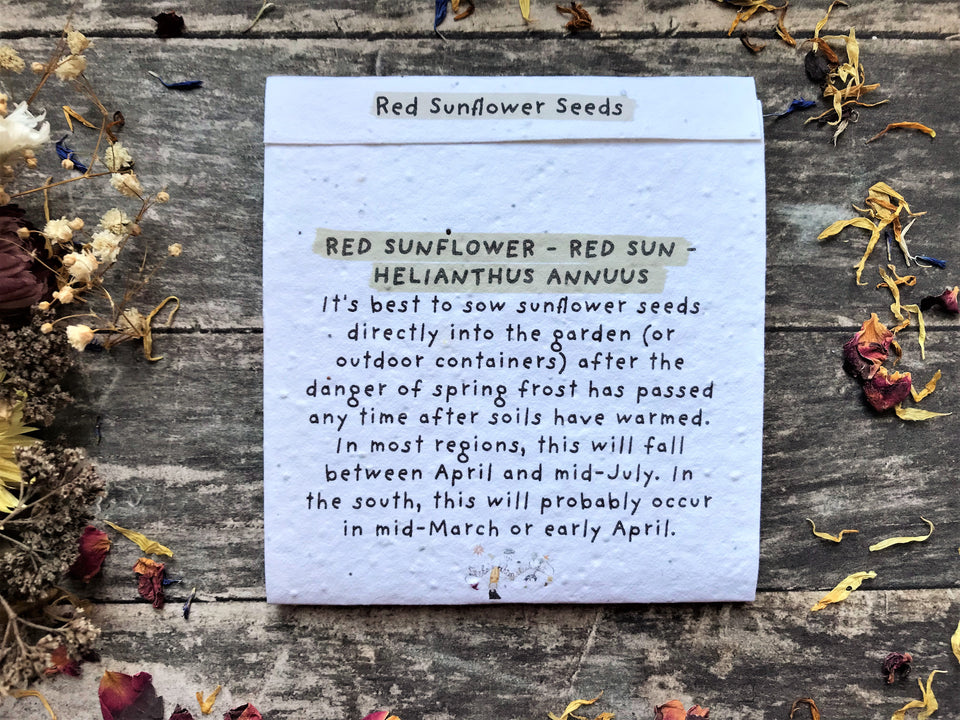 Red Sunflower Seeds
RED SUNFLOWER - RED SUN -
HELIANTHUS ANNUUS
It's best to sow sunflower seeds
directly into the garden (or
outdoor containers) after the
danger of spring frost has passed
any time after soils have warmed.
In most regions, this will fall
between April and mid-July. In
the south, this will probably occur
in mid-March or early April.